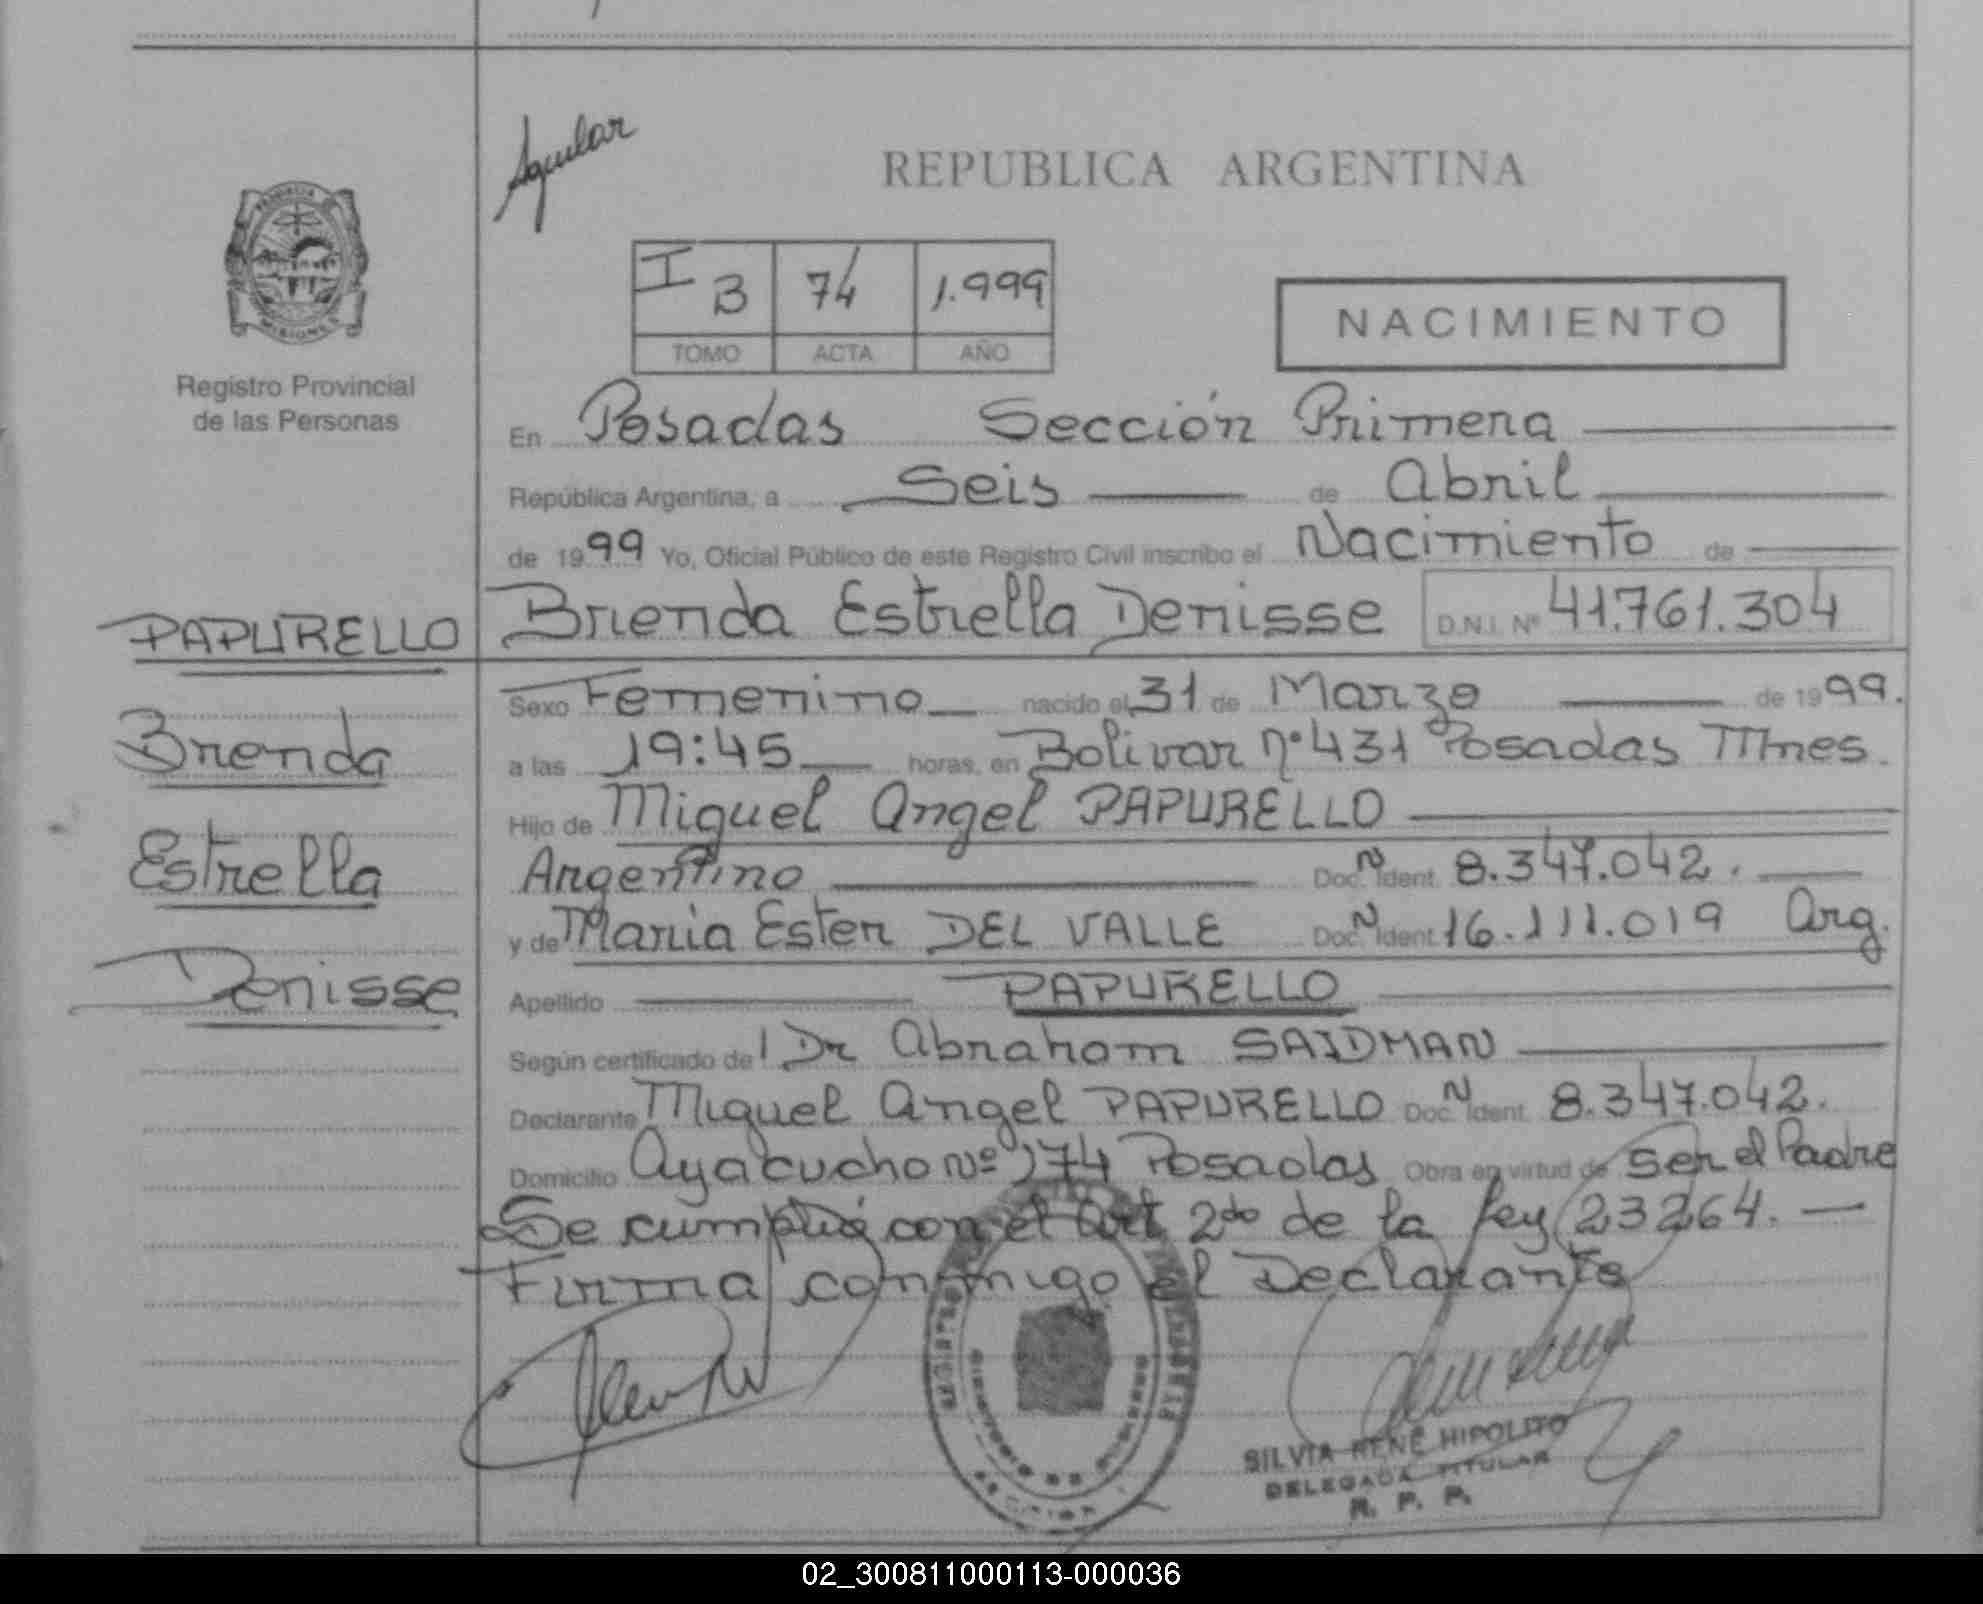 Aguilar
REPUBLICA ARGENTINA
I B 74 1.999
TOMO ACTA AÑO
NACIMIENTO
MISIONES
Registro Provincial
de las Personas
En Posadas Sección Primera
República Argentina, a Seis de Abril
de 1999 Yo, Oficial Público de este Registro Civil inscribo el Nacimiento de
PAPURELLO
Brenda Estrella Denisse D.N.I. Nº 41.761.304
Sexo Femenino nacido el 31 de Marzo de 1999.
Brenda
a las 19:45 horas, en Bolivar nº 431 Posadas Mnes.
Hijo de Miguel Angel PAPURELLO
Estrella
Argentino Doc. N Ident. 8.347.042.
y de Maria Ester DEL VALLE Doc. N Ident. 16.111.019 Arg.
Denisse
Apellido PAPURELLO
Según certificado de Dr Abraham SAIDMAN
Declarante Miguel Angel PAPURELLO Doc. N Ident. 8.347.042.
Domicilio Ayacucho Nº 274 Posadas Obra en virtud de Ser el Padre
Se cumplió con el Art 2do de la Ley 23264.
Firma conmigo el Declarante
SILVIA RENE HIPOLITO
DELEGADA TITULAR
R. P. P.
02_300811000113-000036